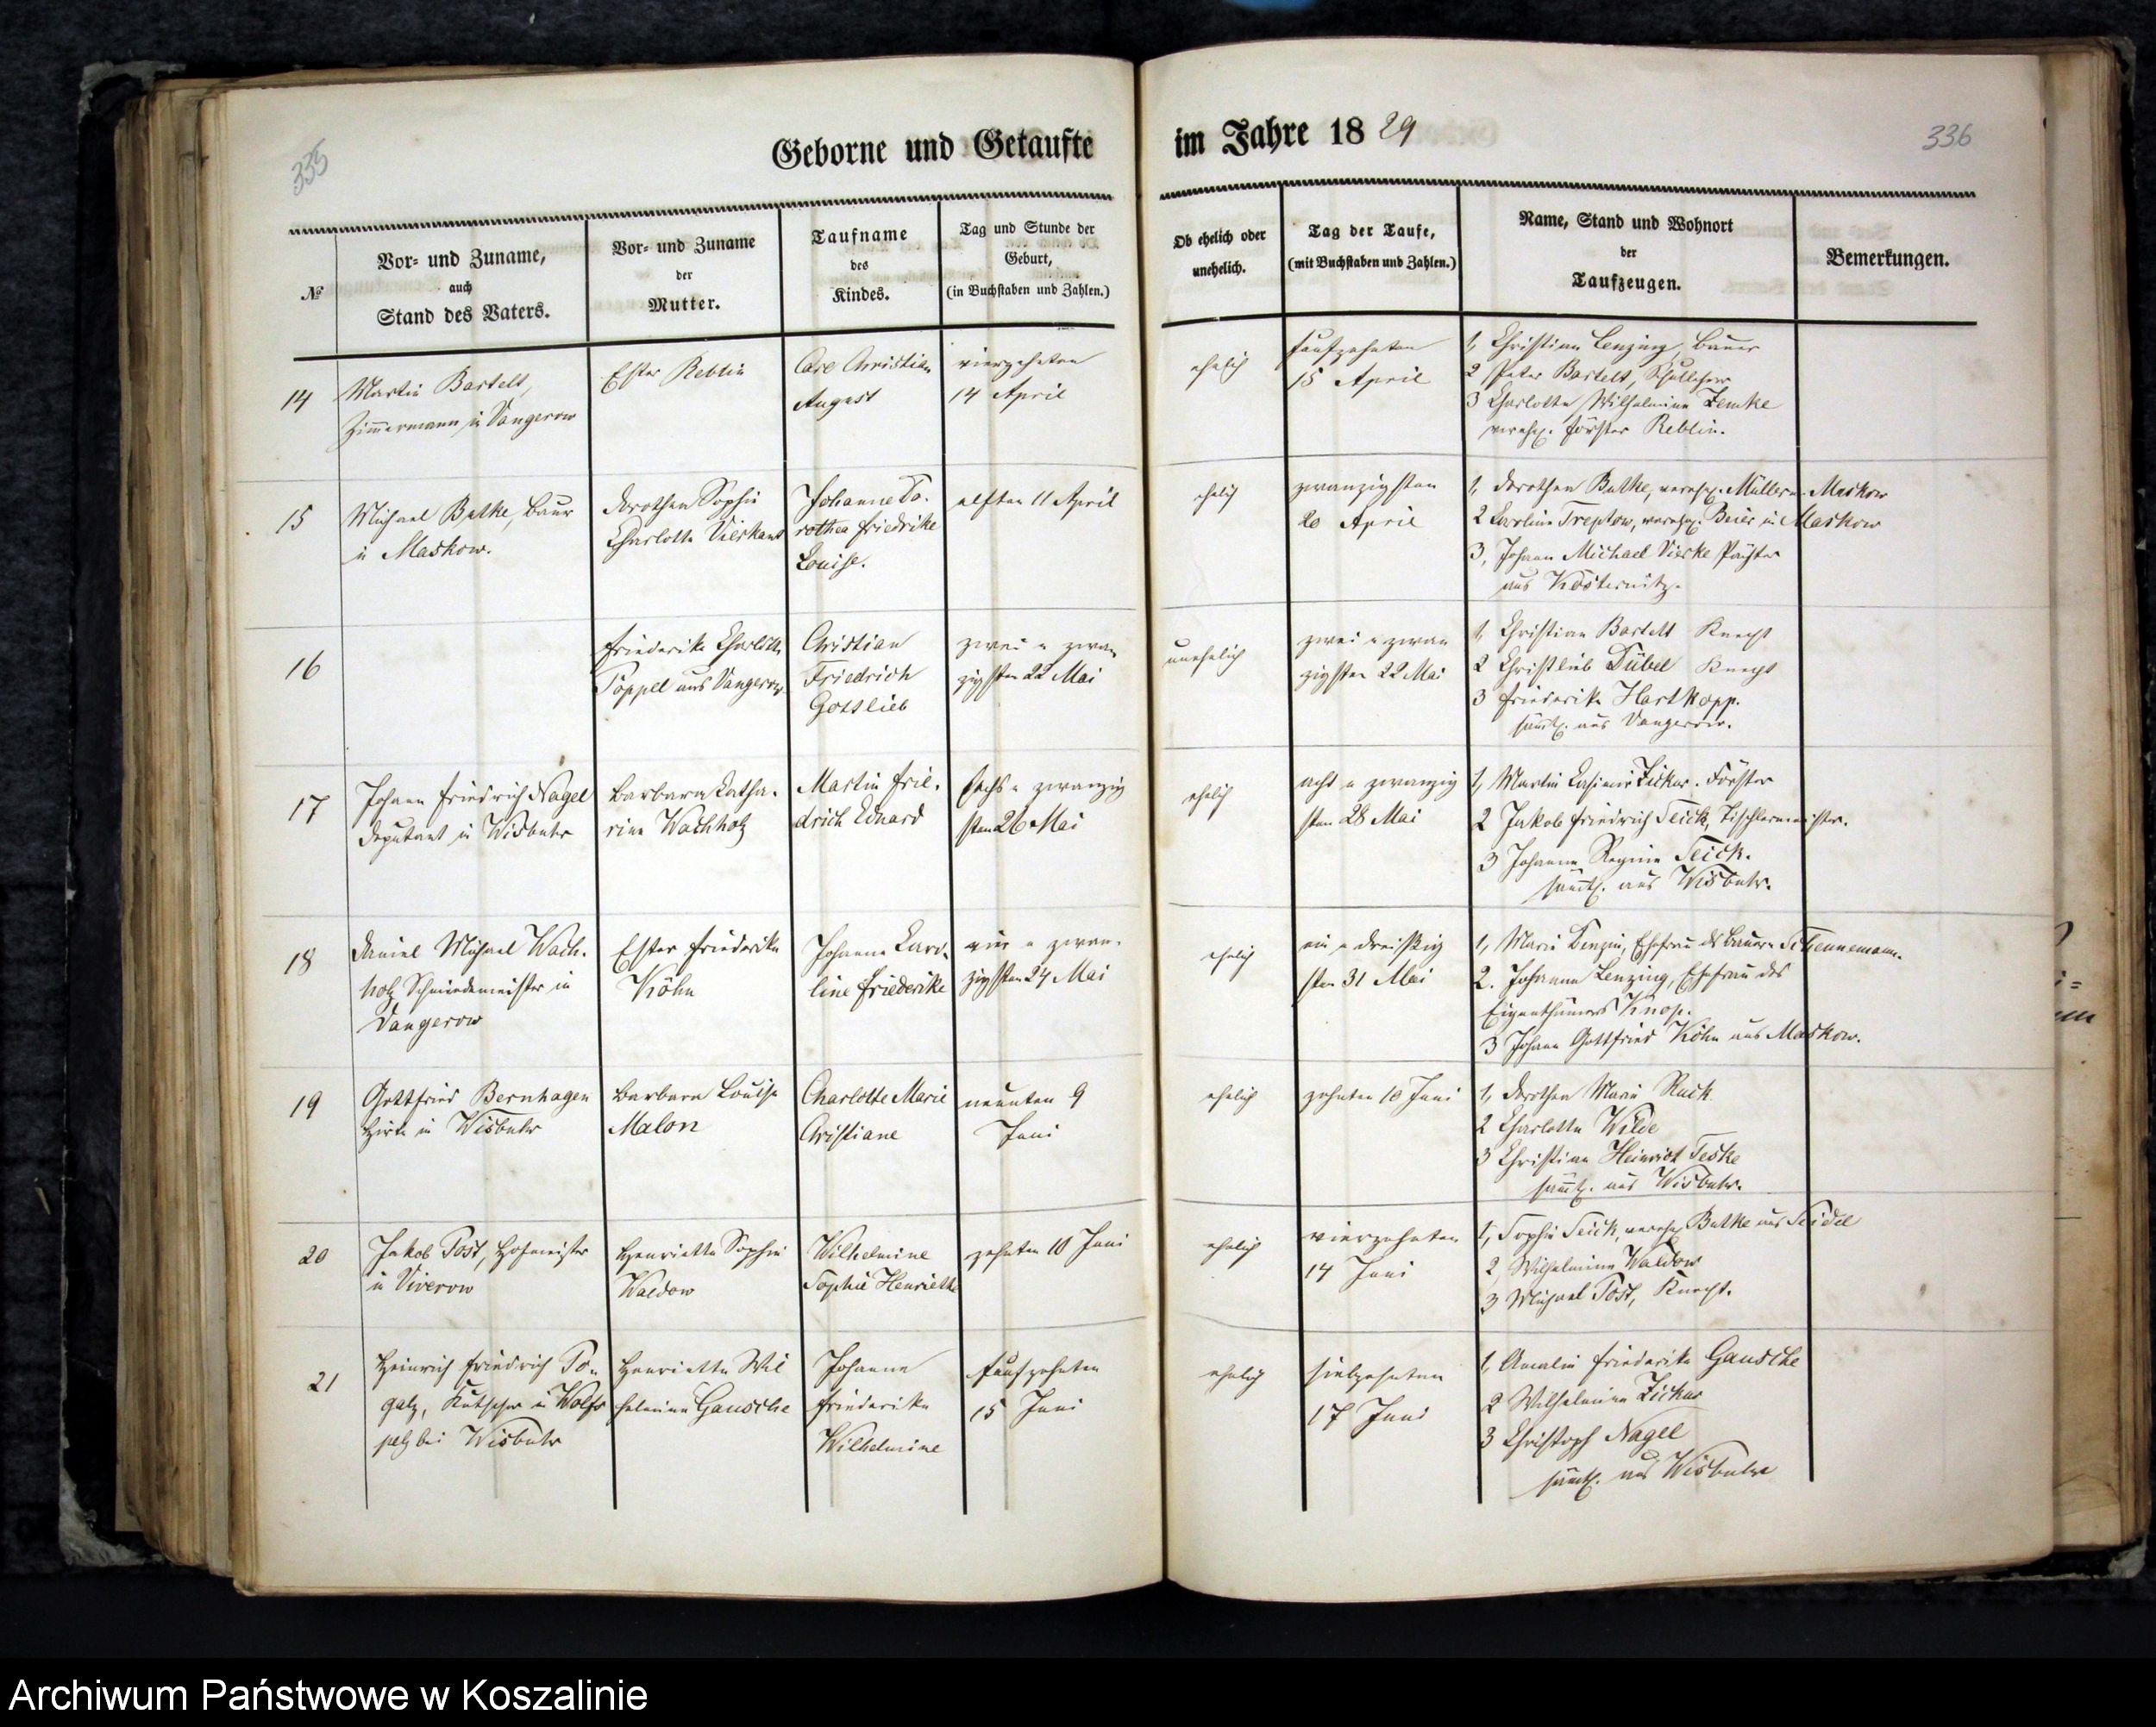 335
Geborne und Getaufte
im Jahre 1829
336
№
Vor- und Zuname,
auch
Stand des Vaters.
Vor- und Zuname
der
Mutter.
Taufname
des
Kindes.
Tag und Stunde der
Geburt,
(in Buchstaben und Zahlen.)
Ob ehelich oder
unehelich.
Tag der Taufe,
(mit Buchstaben und Zahlen.)
Name, Stand und Wohnort
der
Taufzeugen.
Bemerkungen.
14
Martin Bartelt,
Zimmermann in Vangerow
Ester Reblin
Carl Christian
August
vierzehnten
14 April
ehelich
fünfzehnten
15 April
1, Christian Lenzing, Bauer
2 Peter Bartelt, Schullehrer
3 Charlotte Wilhelmine Zemke
verehel. Förster Reblin.
15
Michael Butke, Baur
in Maskow.
Dorothea Sophie
Charlotte
Johanne Do-
rothea Friedrike
Louise.
elften 11 April
ehelich
zwanzigsten
20 April
1, Dorothea Butke, verehel. Müller - Maskow
2 Caroline Treptow, verehel. Beier in Maskow
3, Johann Michael Vierke
aus Kösternitz.
16
Friederike Charlotte
Poppel aus Vangerow
Christian
Friedrich
Gottlieb
zwei u zwan
zigsten 22 Mai
unehelich
zwei u zwan
zigsten 22 Mai
1, Christian Bartelt Knecht
2 Christlieb Dübel Knecht
3 Friederike Hartkopp.
sämtl. aus Vangerow.
17
Johann Friedrich Nagel
Deputant in Wisbuhr
Barbara Catha-
rine Wachholz
Martin Frie-
drich Eduard
sechs u zwanzig
sten 26 Mai
ehelich
acht u zwanzig
sten 28 Mai
1, Martin Casimir Zickur. Förster
2 Jakob Friedrich Teick, Tischlermeister.
3 Johanne Regine Teick.
sämtl. aus Wisbuhr.
18
Daniel Michael Wach-
holz Schmiedemeister in
Vangerow
Ester Friederike
Köhn
Johanne Karo-
line Friederike
vier u zwan-
zigsten 24 Mai
ehelich
ein u dreißig
sten 31 Mai
1, Marie Benzin, Ehefrau ds Bauern
2. Johanne Lenzing, Ehefrau des
Eigenthümers Knop.
3 Johann Gottfried Köhn aus Maskow.
19
Gottfried Bernhagen
Hirte in Wisbuhr
Barbara Louise
Malon
Charlotte Marie
Christiane
neunten 9
Juni
ehelich
zehnten 10 Juni
1, Dorothea Marie Rack
2 Charlotte Wilde
3 Christian Heinrich Teske
sämtl. aus Wisbuhr.
20
Jakob Post, Hofmeister
in Viverow
Henriette Sophie
Waldow
Wilhelmine
Sophie Henriette
zehnten 10 Juni
ehelich
vierzehnten
14 Juni
1, Sophie Teick, verehel. Butke aus Seidel
2, Wilhelmine Waldow
3 Michael Post, Knecht.
21
Heinrich Friedrich Po-
galz, Kutscher in Wolfs
pelz bei Wisbuhr
Henriette Wil
helmine Gauschke
Johanne
Friederike
Wilhelmine
fünfzehnten
15 Juni
ehelich
siebzehnten
17 Juni
1, Amalie Friederike Gauschke
2 Wilhelmine Zickur
3 Christoph Nagel
sämtl. aus Wisbuhr
Archiwum Państwowe w Koszalinie